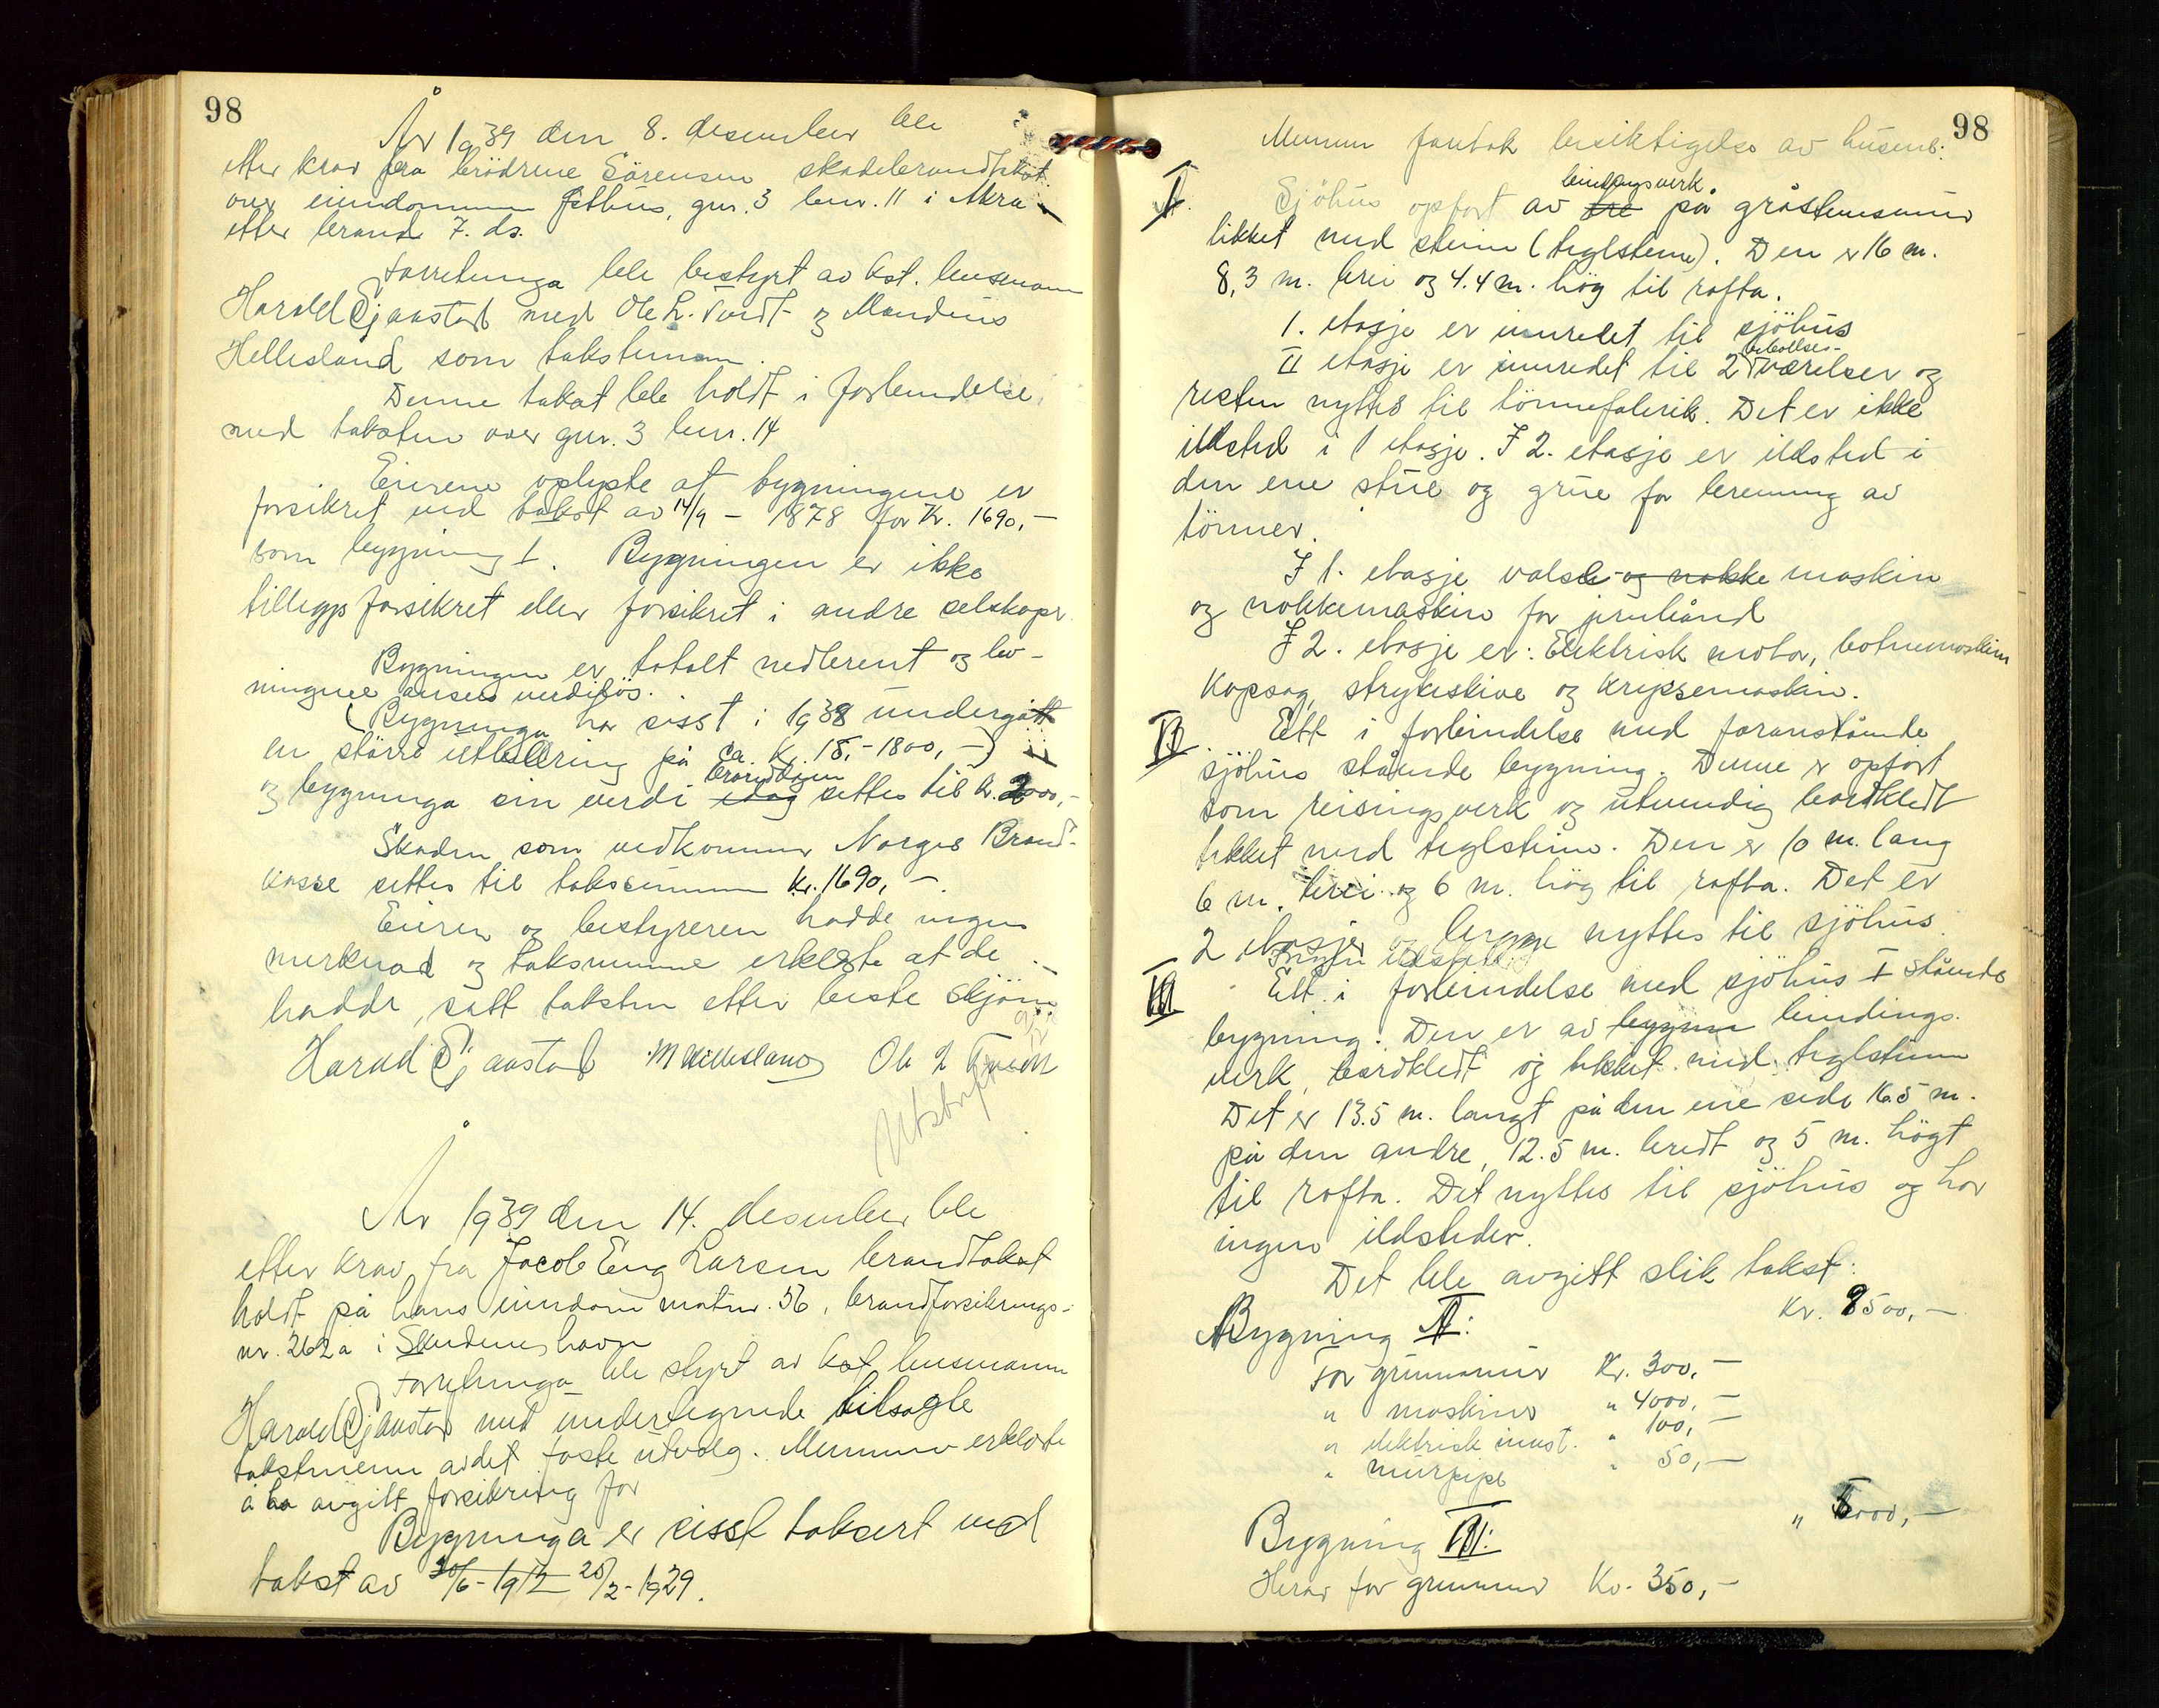 98
År 1939 den 8. desember ble
etter krav fra brödrene Sörensen skadebrandtakst
over eiendommen Östhus, gnr. 3 bnr. 11 i Åkra
etter brand 7. ds.
Forretninga ble bestyrt av kst. lensmann
Harald Sjaastad med Ole L. Tvedt og Mandius
Hellesland som takstmenn.
Denne takst ble holdt i forbindelse
med taksten over gnr. 3 bnr. 14
Eierene oplyste at bygningene er
forsikret ved takst av 14/9 - 1878 for Kr. 1690,-
som bygning 1. Bygningen er ikke
tilleggsforsikret eller forsikret i andre selskaper.
Bygningen er totalt nedbrent og lev-
ningene anses verdilös.
(Bygninga har sisst i 1938 undergått
en större utbedring på ca. kr. 15,-1800,-)
branddagen
og bygninga sin verdi idag settes til kr. 2000,-
Skaden som vedkommer Norges Brand-
kasse settes til takssummen kr. 1690,-.
Eieren og bestyreren hadde ingen
merknad og taksmennene erklærte at de
hadde satt taksten etter beste skjönn.
Harald Sjaastad M Hellesland Ole L Tvedt
Utskrift
År 1939 den 14. desember ble
etter krav fra Jacob Eng Larsen brandtakst
holdt på hans eiendom matnr. 56, brandforsikrings-
nr. 262a i Skudeneshavn
Forretninga ble styrt av kst. lensmann
Harald Sjaastad med undertegnede tilsagte
takstmenn av det faste utvalg. Mennene erklærte
å ha avgitt forsikring for
Bygninga er sisst taksert ved
takst av 20/6-1912 25/2-1929.
98
Mennene foretok besiktigelse av husene:
bindingsverk
I. Sjöhus opfört av tre på gråstensmur
tekket med stein (teglstein). Den er 16 m.
8,3 m. brei og 4.4 m. hög til rafta.
1. etasje er innredet til sjöhus
beboelses-
II etasje er innredet til 2 værelser og
resten nyttes til tönnefabrik. Det er ikke
ildsted i 1 etasje. I 2. etasje er ildsted i
den ene stue og grue for brenning av
tönner.
I 1. etasje valse og nakke maskin
og nakkemaskin for jernbånd
I 2. etasje er: Elektrisk motor, botnemaskin
kapsag, strykeskive og krysemaskin.
II Ett i forbindelse med foranstående
sjöhus stående bygning. Denne er opfört
som reisingsverk og utvendig bordkledt
tekket med teglstein. Den er 10 m. lang
6 m. brei og 6 m. hög til rafta. Det er
2 etasjer og begge nyttes til sjöhus.
Ingen ildsted
III Ett i forbindelse med sjöhus I stående
bygning. Den er av bygnin bindings-
verk, bordkledt og tekket med teglstein
Det er 13.5 m. langt på den ene side 16.5 m.
på den andre, 12.5 m. bredt og 5 m. högt
til rafta. Det nyttes til sjöhus og har
ingen ildsteder.
Det ble avgitt slik takst:
Bygning I: Kr. 9500,-
For grunnmur Kr. 300,-
" maskiner " 4000,-
" elektrisk inst. " 100,-
" murpipe " 50,-
Bygning II: " 5000,-
Herav for grunnmur Kr. 350,-